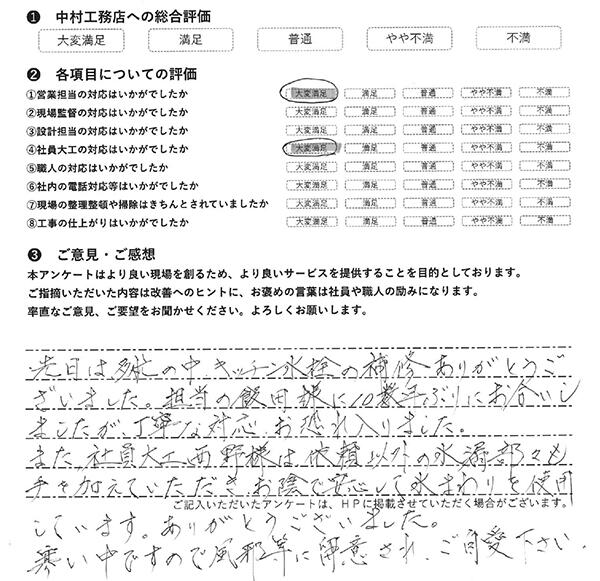 ❶ 中村工務店への総合評価
大変満足 満足 普通 やや不満 不満
❷ 各項目についての評価
①営業担当の対応はいかがでしたか 大変満足 満足 普通 やや不満 不満
②現場監督の対応はいかがでしたか 大変満足 満足 普通 やや不満 不満
③設計担当の対応はいかがでしたか 大変満足 満足 普通 やや不満 不満
④社員大工の対応はいかがでしたか 大変満足 満足 普通 やや不満 不満
⑤職人の対応はいかがでしたか 大変満足 満足 普通 やや不満 不満
⑥社内の電話対応等はいかがでしたか 大変満足 満足 普通 やや不満 不満
⑦現場の整理整頓や掃除はきちんとされていましたか 大変満足 満足 普通 やや不満 不満
⑧工事の仕上がりはいかがでしたか 大変満足 満足 普通 やや不満 不満
❸ ご意見・ご感想
本アンケートはより良い現場を創るため、より良いサービスを提供することを目的としております。
ご指摘いただいた内容は改善へのヒントに、お褒めの言葉は社員や職人の励みになります。
率直なご意見、ご要望をお聞かせください。よろしくお願いします。
先日は多忙の中、キッチン水栓の補修ありがとうご
ざいました。担当の飯田様に10数年ぶりにお会いし
ましたが、丁寧な対応、お恐れ入りました。
また、社員大工、西野様は依頼以外の水漏部々も
手を加えていただき、お陰で安心して水まわりを使用
ご記入いただいたアンケートは、HPに掲載させていただく場合がございます。
しています。ありがとうございました。
寒い中ですので風邪等に留意され、ご自愛下さい.